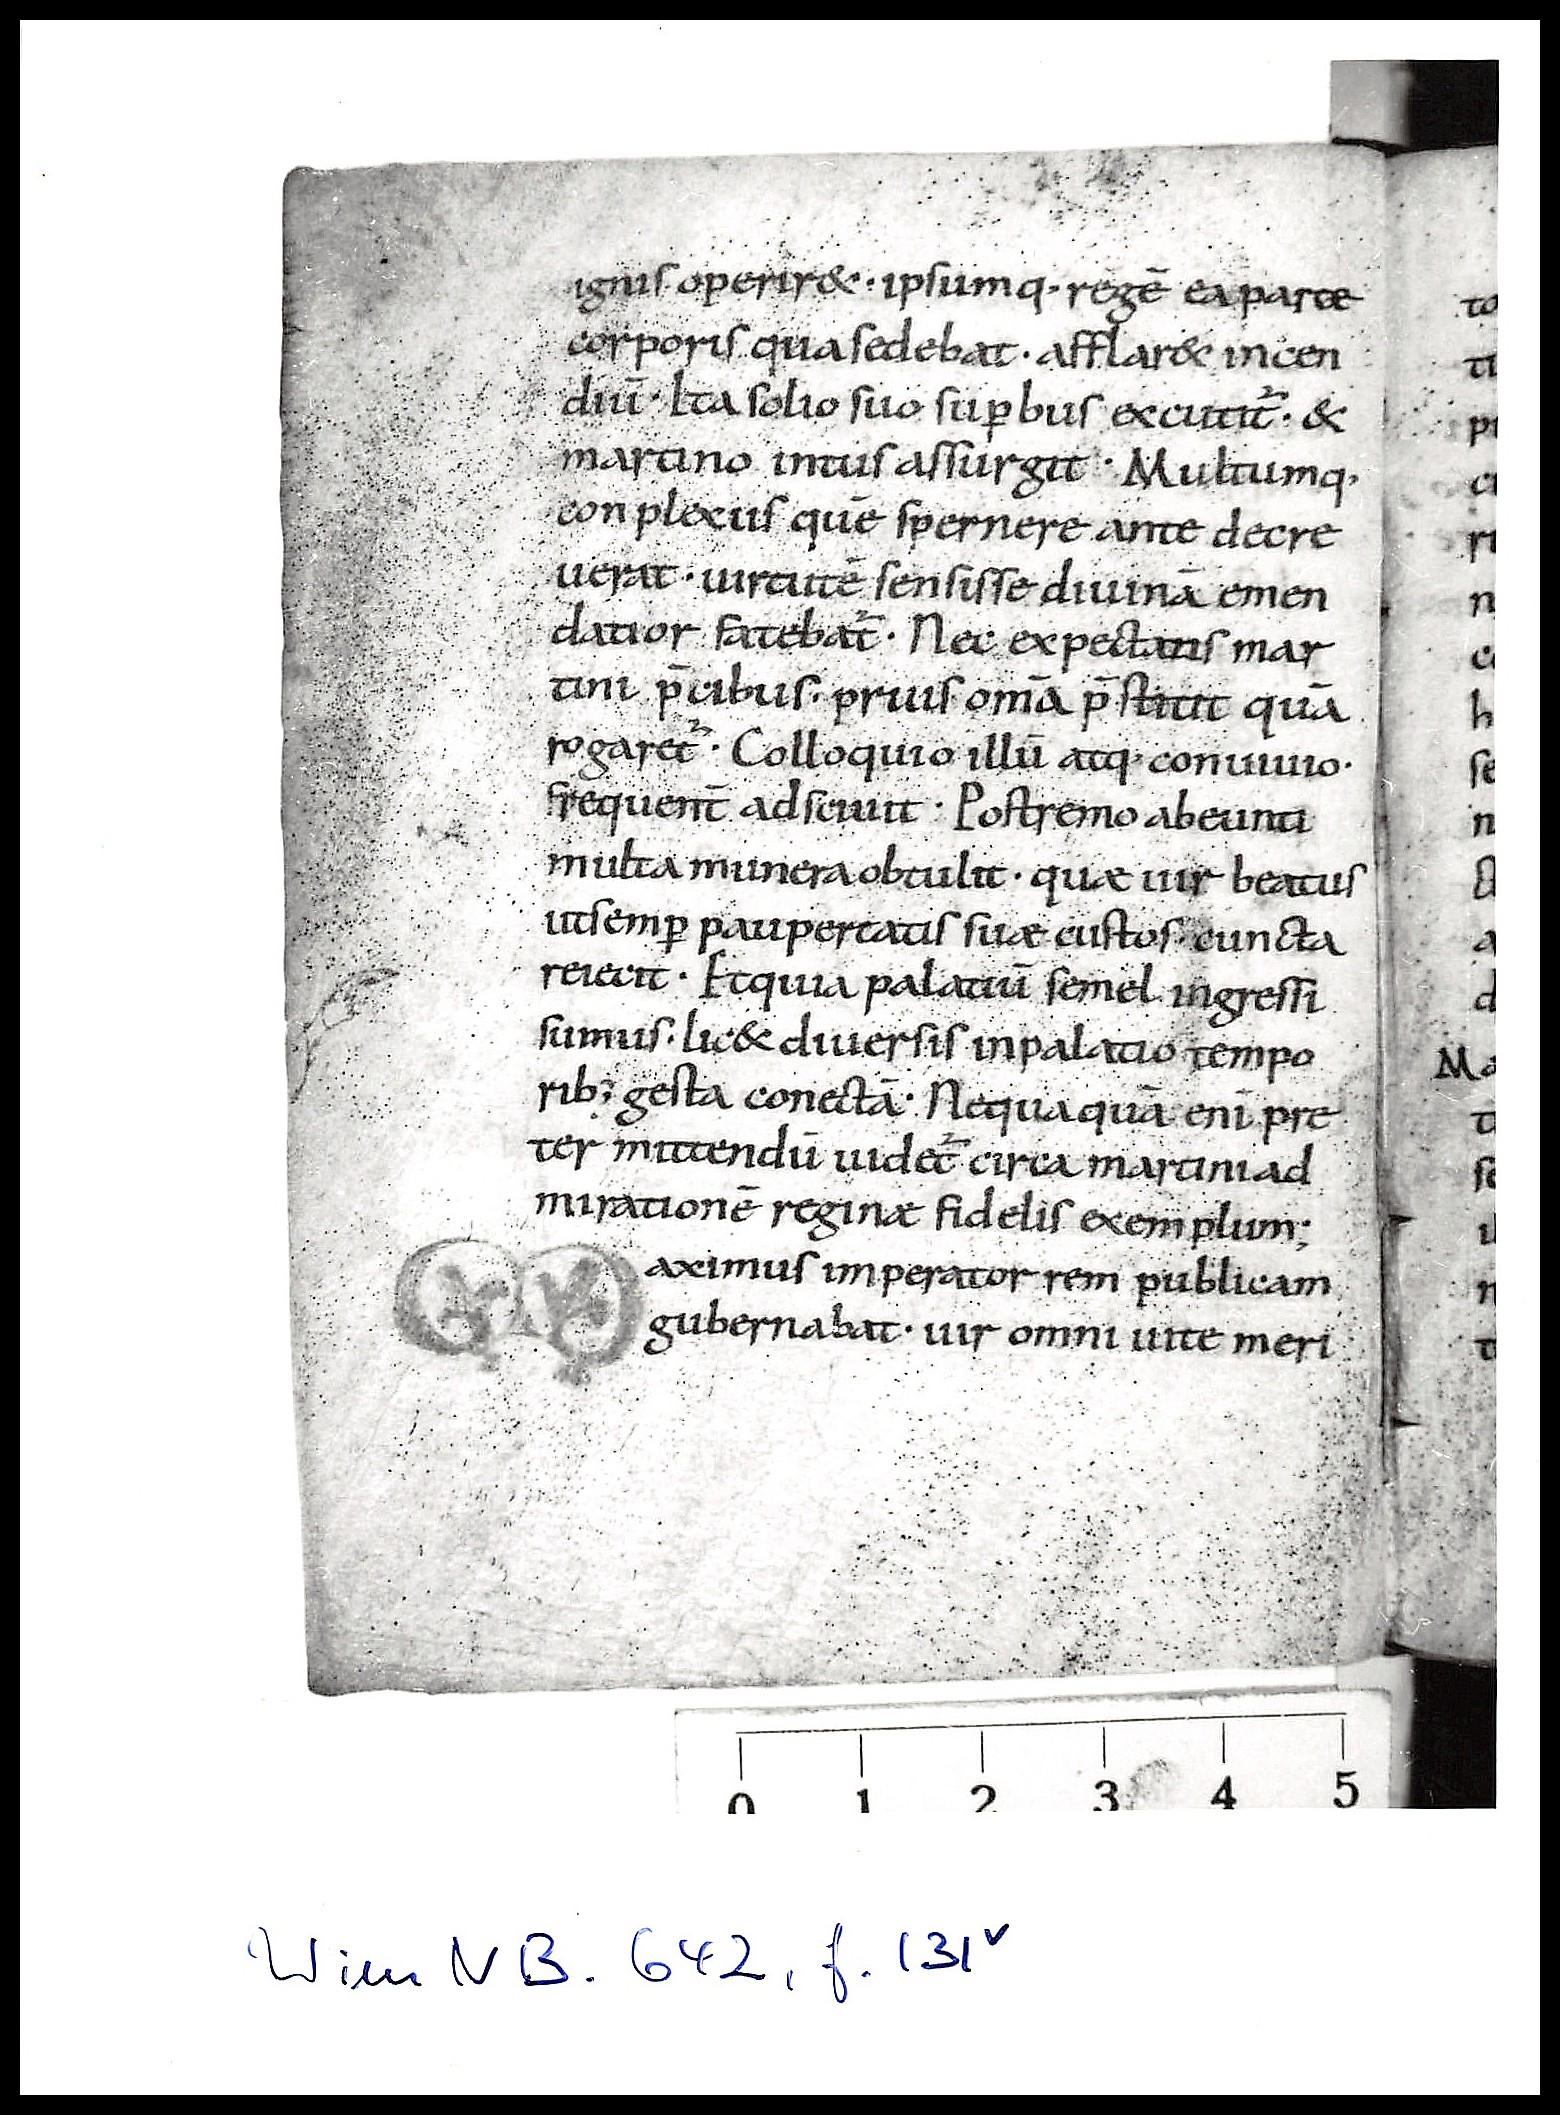 ignis operir&· ipsumq· regē ea parte
corporis qua sedebat· afflar& incen
diū· Ita solio suo sup̱bus excutit᷑· &
martino intus assurgit· Multumq·
conplexus quē spernere ante decre
uerat· uirtutē sensisse diuinā emen
datior fatebat᷑· Nec expectatis mar
tini p̄cibus· prius om̄a p̄stitit quā
rogaret᷑· Colloquio illū atq· conuiuio·
frequent̄ adsciuit· Postremo abeunti
multa munera obtulit· quæ uir beatus
ut semp̱ paupertatis suæ custos· cuncta
reiecit· Et quia palatiū semel ingressi
sumus· lic& diuersis in palatio tempo
rib; gesta conectā· Nequaquā eni̅ pre
ter mittendū uidet᷑ circa martini ad
mirationē reginæ fidelis exemplum;
Maximus imperator rem publicam
gubernabat· uir omni uite meri
to
ti
pr
ri
n
h
se
n
a
d
Ma
se
n
0 1 2 3 4 5
Wien NB. 642, f. 131v